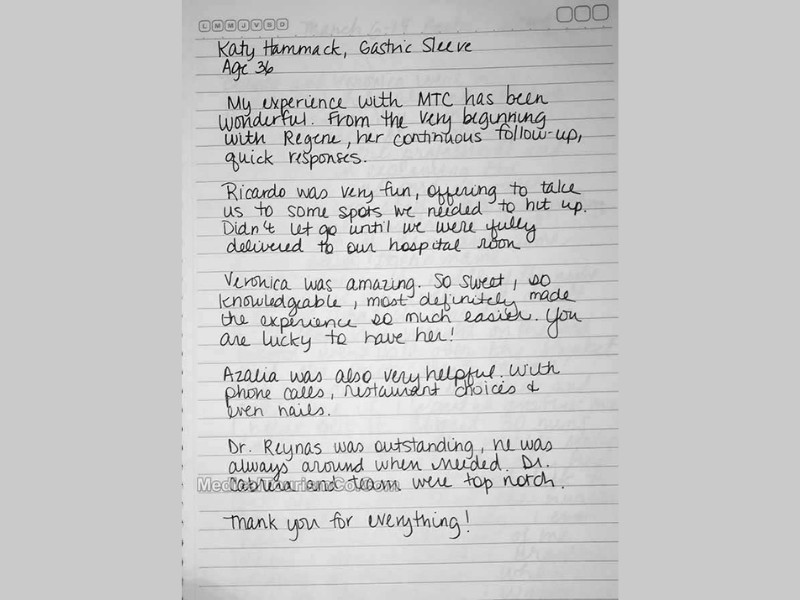 L M M J V S D
Katy Hammack, Gastric Sleeve
Age 36
My experience with MTC has been
wonderful. From the very beginning
with Regene, her continuous follow-up,
quick responses.
Ricardo was very fun, offering to take
us to some spots we needed to hit up.
Didn't let go until we were fully
delivered to our hospital room
Veronica was amazing. So sweet, so
knowledgeable, most definitely made
the experience so much easier. You
are lucky to have her!
Azalia was also very helpful. With
phone calls, restaurant choices &
even nails.
Dr. Reynas was outstanding, he was
always around when needed. Dr.
Cabrera and team were top notch.
MedicalTourismCo.Com
Thank you for everything!